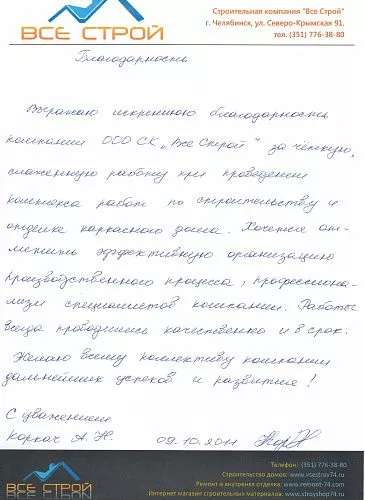 ВСЕ СТРОЙ
Строительная компания "Все Строй"
г. Челябинск, ул. Северо-Крымская 91.
тел. (351) 776-38-80
Благодарность
Выражаю искреннюю благодарность
компании ООО СК "Все Строй" за чёткую,
слаженную работу при проведении
комплекса работ по строительству и
отделке каркасного дома. Хочется от-
метить эффективную организацию
производственного процесса, профессиона-
лизм специалистов компании. Работы
всегда проводились качественно и в срок.
Желаю всему коллективу компании
дальнейших успехов и развития!
С уважением
Коркач А. Н. 09.10.2011
ВСЕ СТРОЙ
Телефон: (351) 776-38-80
Строительство домов: www.vsestroy74.ru
Ремонт и внутреняя отделка: www.remont-74.com
Интернет магазин строительных материалов: www.stroyshop74.ru